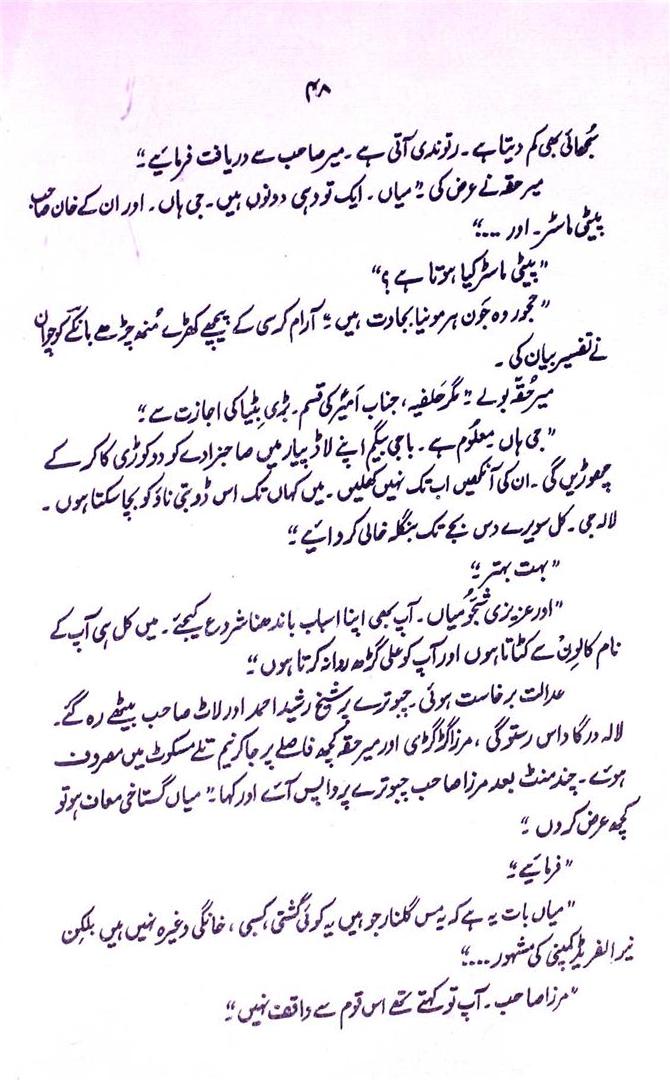 ۴۸
سُجھائی بھی کم دیتا ہے۔ رتوندی آتی ہے۔ میر صاحب سے دریافت فرمائیے۔“
میر حقہ نے عرض کی۔ ”میاں۔ ایک تو وہی دونوں ہیں۔ جی ہاں۔ اور ان کے خان صاحب
پیٹی ماسٹر۔ اور ....“
”پیٹی ماسٹر کیا ہوتا ہے؟“
”حجور وہ جَون ہرمونیا بجاوت ہیں“ آرام کرسی کے پیچھے کھڑے مُنھ چڑھے بانکے کوچوان
نے تفسیر بیان کی۔
میر حُقّہ بولے۔ ”مگر حَلفیہ، جناب اَمیرؑ کی قسم۔ بڑی بِٹیا کی اجازت سے۔“
”جی ہاں معلُوم ہے۔ باجی بیگم اپنے لاڈ پیار میں صاحبزادے کو دو کوڑی کا کر کے
چھوڑیں گی۔ ان کی آنکھیں اب تک نہیں کھلیں۔ میں کہاں تک اس ڈوبتی ناؤ کو بچا سکتا ہوں۔
لالہ جی۔ کل سویرے دس بجے تک بنگلہ خالی کروائیے۔“
”بہت بہتر۔“
”اور عزیزی شَجّو میاں۔ آپ بھی اپنا اسباب باندھنا شروع کیجئے۔ میں کل ہی آپ کے
نام کالوِنْ سے کٹاتا ہوں اور آپ کو علی گڑھ روانہ کرتا ہوں۔“
عدالت برخاست ہوئی۔ چبوترے پر شیخ رشید احمد اور لاٹ صاحب بیٹھے رہ گئے۔
لالہ درگا داس رستوگی، مرزا گڑگڑی اور میر حقہ کچھ فاصلے پر جا کر نیم تلے مسکوٹ میں مصروف
ہوئے۔ چند منٹ بعد مرزا صاحب چبوترے پر واپس آئے اور کہا۔ ”میاں گستاخی معاف ہو تو
کچھ عرض کروں۔“
”فرمائیے۔“
”میاں بات یہ ہے کہ یہ مس گلنار جو ہیں یہ کوئی گشتی، کسبی، خانگی وغیرہ نہیں ہیں بلکِن
نیو الفریڈ کمپنی کی مشہور ....“
”مرزا صاحب۔ آپ تو کہتے تھے اس قوم سے واقف نہیں۔“